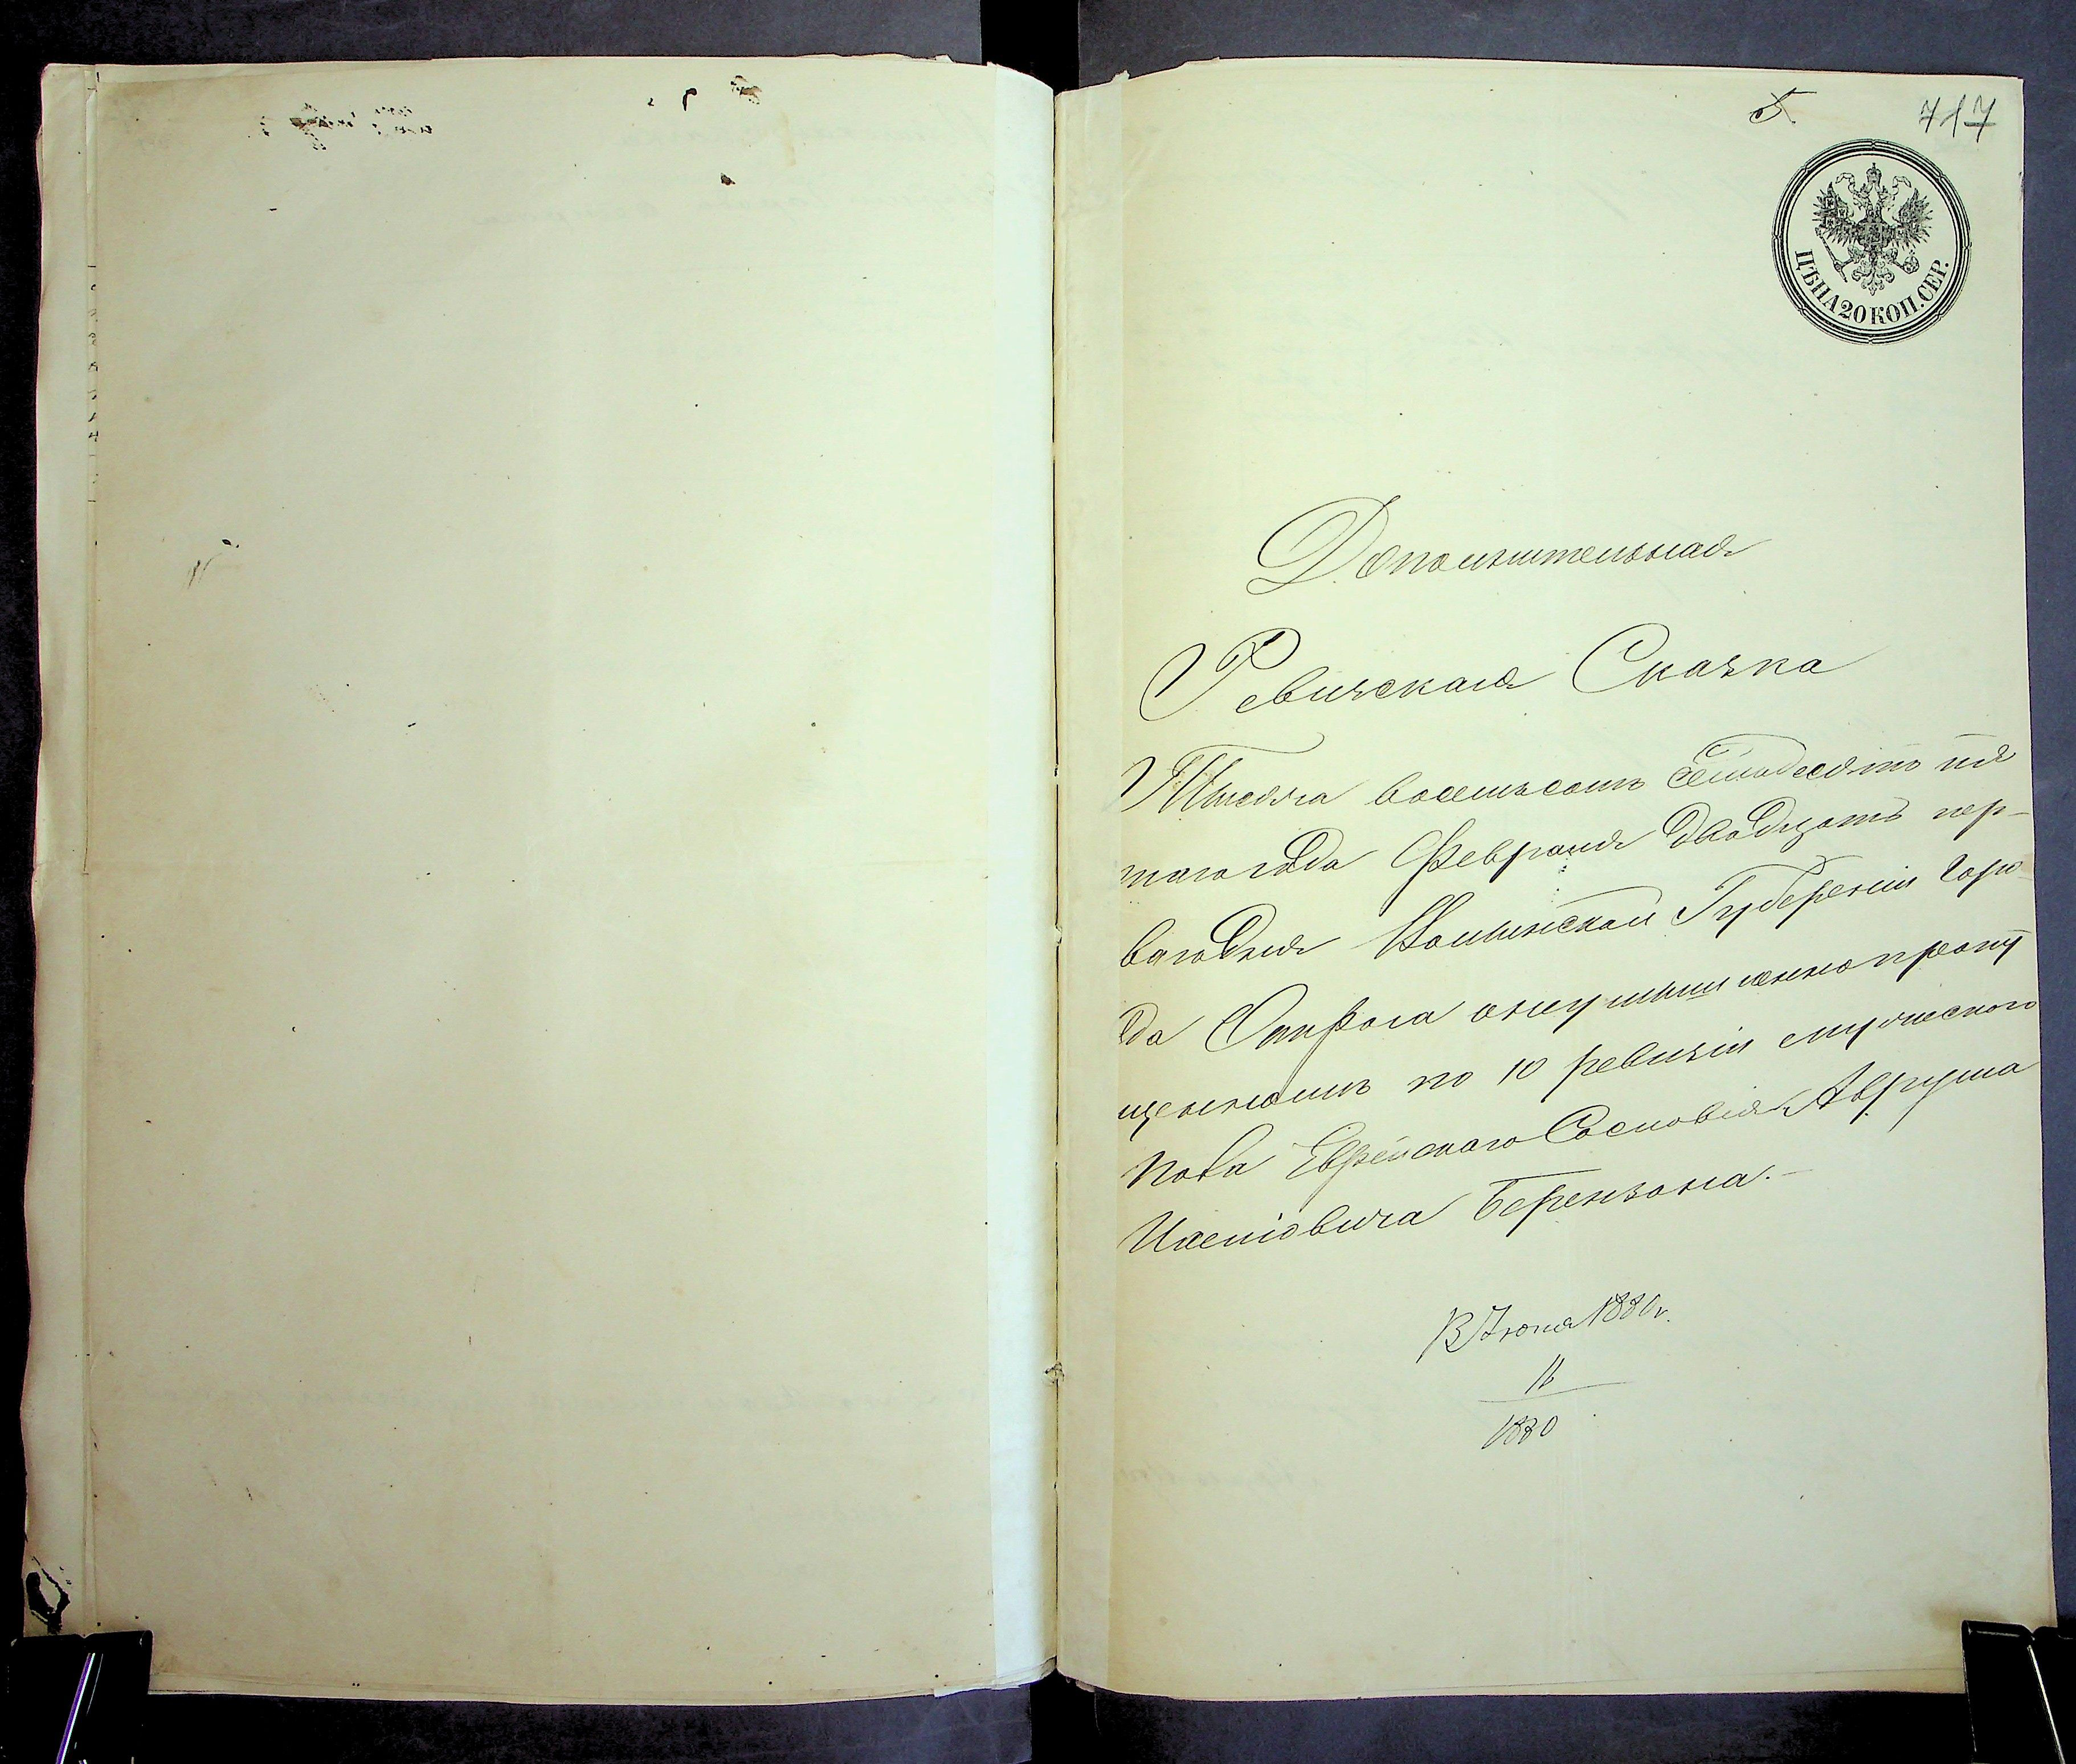 5
717
ЦѢНА 20 КОП. СЕР.
Дополнительная
Ревизская Сказка
Тысяча восемьсотъ семьдесятъ пя
таго года Февраля двадцать пер-
ваго дня Волынской Губерніи горо
да Острога о неумышленно пропу
щенномъ по 10 ревизіи мужескаго
пола Еврейскаго Сословія Аврума
Берензона.-
Іюня 1880 г.
1880